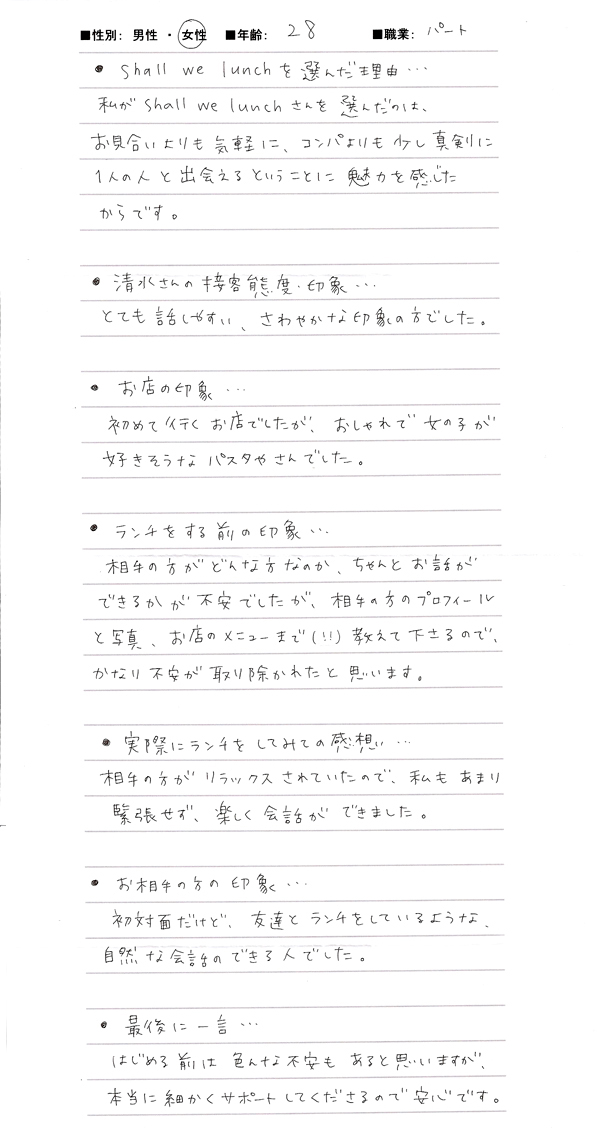 ■性別: 男性 ・ 女性 ■年齢: 28 ■職業: パート
● shall we lunchを選んだ理由…
私がshall we lunchさんを選んだのは、
お見合いよりも気軽に、コンパよりも少し真剣に
1人の人と出会えるということに魅力を感じた
からです。
● 清水さんの接客態度・印象…
とても話しやすい、さわやかな印象の方でした。
● お店の印象…
初めて行くお店でしたが、おしゃれで女の子が
好きそうなパスタやさんでした。
● ランチをする前の印象…
相手の方がどんな方なのか、ちゃんとお話が
できるかが不安でしたが、相手の方のプロフィール
と写真、お店のメニューまで(!!)教えて下さるので、
かなり不安が取り除かれたと思います。
● 実際にランチをしてみての感想い…
相手の方がリラックスされていたので、私もあまり
緊張せず、楽しく会話ができました。
● お相手の方の印象…
初対面だけど、友達とランチをしているような、
自然な会話のできる人でした。
● 最後に一言…
はじめる前は色んな不安もあると思いますが、
本当に細かくサポートしてくださるので安心です。